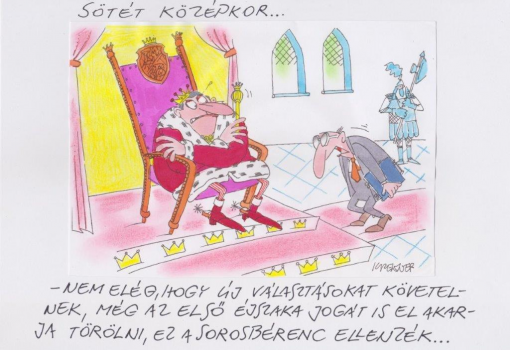 SÖTÉT KÖZÉPKOR...
-NEM ELÉG, HOGY ÚJ VÁLASZTÁSOKAT KÖVETEL-
NEK, MÉG AZ ELSŐ ÉJSZAKA JOGÁT IS EL AKAR-
JA TÖRÖLNI, EZ A SOROSBÉRENC ELLENZÉK...